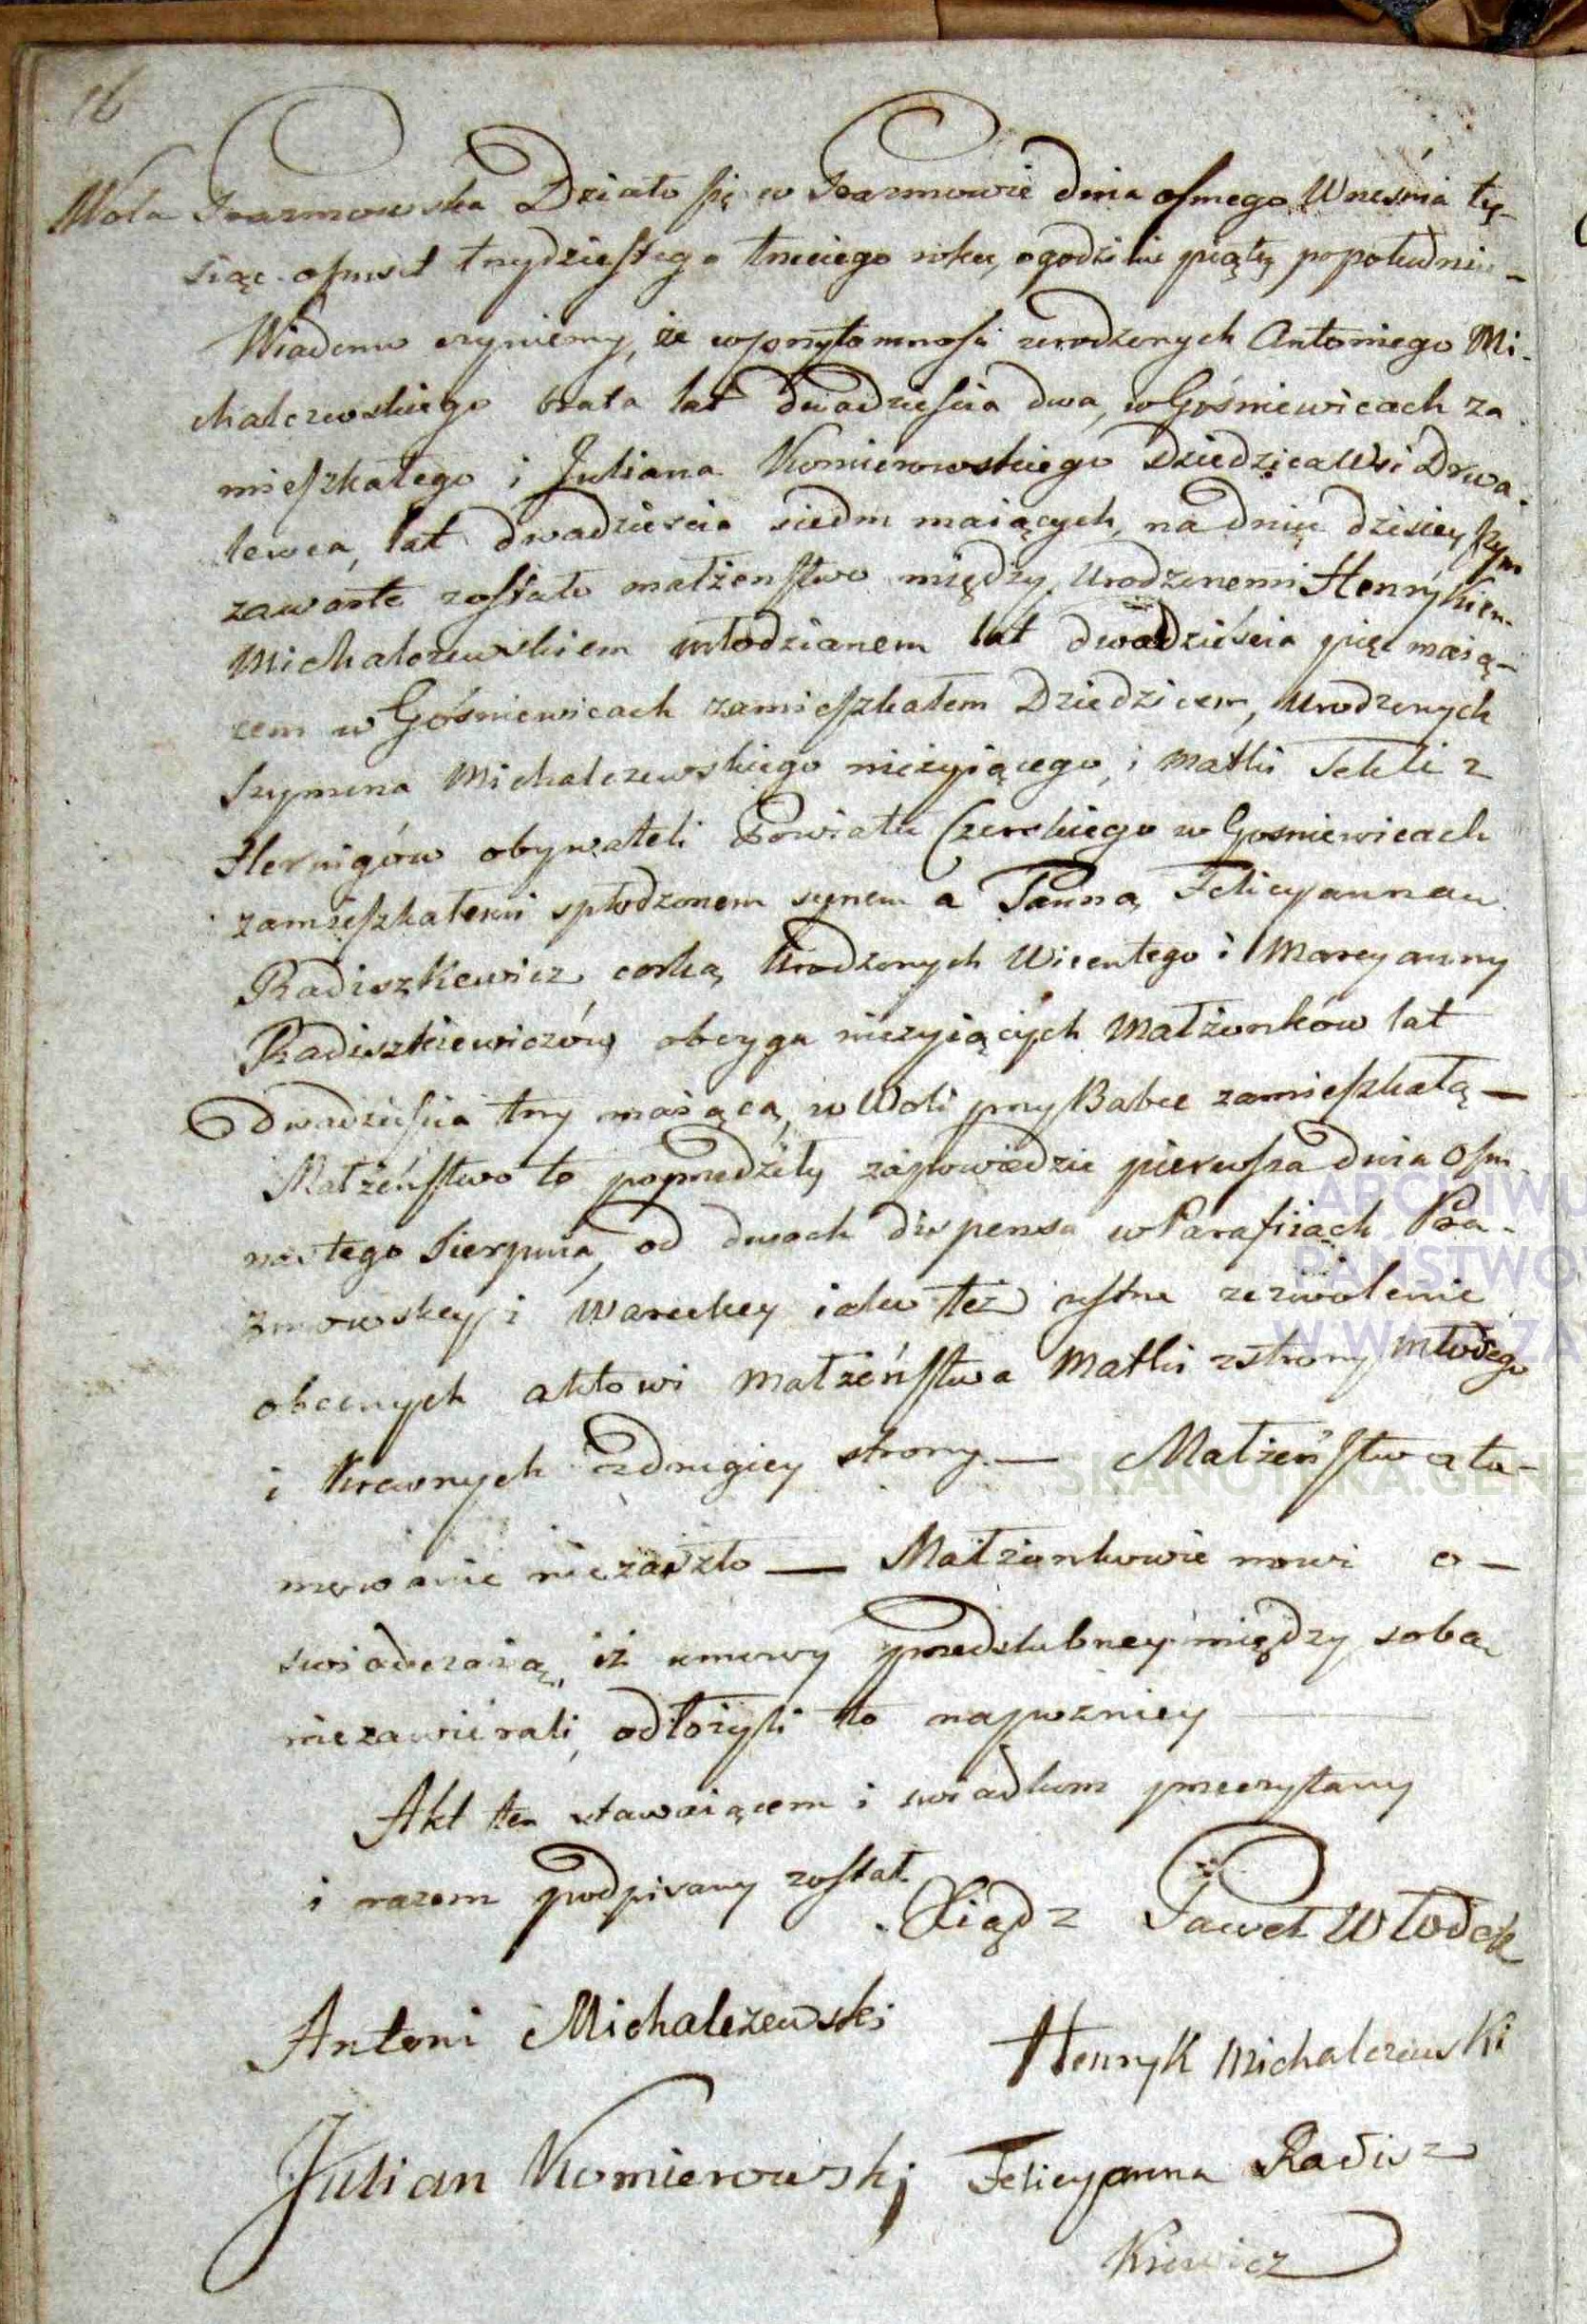 16
Wola Prazmowska Działo się w Prazmowie dnia osmego Wrzesnia ty-
siąc osmset trzydziestego trzeciego roku, o godzinie piątey popołudniu –
Wiadomo czyniemy, że w przytomnosci urodzonych Antoniego Mi-
chalczewskiego brata lat dwadziescia dwa, w Gośniewicach za
mieszkałego i Juliana Komierowskiego Dziedzica Wsi Drwa-
lewca, lat dwadziescia siedm maiących, na dniu dzisieyszym
zawarte zostało małżenstwo między Urodzonemi Henrykiem
Michalczewskiem młodzianem lat dwadzieścia pięc maią-
cem w Gośniewicach zamieszkałem Dziedzicem, Urodzonych
Szymona Michalczewskiego nieżyiącego, i matki Tekli z
Hernigów obywateli Powiatu Czerskiego w Gosniewicach
zamieszkałemi spłodzonem synem a Panną Felicyanną
Radiszkiewicz corką Urodzonych Wicentego i Maryanny
Radiszkiewiczów obcyga nieżyiących Małżonków lat
Dwadziescia trzy maiącą, w Woli przy Babce zamieszkałą –
Małżeństwo to poprzedziły zapowiedzie pierwsza dnia Osm
nastego Sierpnia, od dwoch dispensa w Parafiiach Pra-
zmowskey i Wareckey iako też ustne zezwolenie
obecnych aktowi Małżeństwa Matki z strony młodego
i Krewnych z drugiey strony – Małżeństwa ta-
mowanie niezaszło – Małżonkowie nowi o –
swiadczaią, iż umowy przedslubney między sobą
niezawierali, odłożyli to napozniey
Akt ten stawaiącem i swiadkom przeczytany
i razem podpisany został.
Xiądz Paweł Włodek
Antoni Michalczewski
Henryk Michalczewski
Julian Komierowski Felicyanna Radisz
Kiewicz
ARCHIWU
PAŃSTWO
W WARSZA
SKANOTEKA.GENE